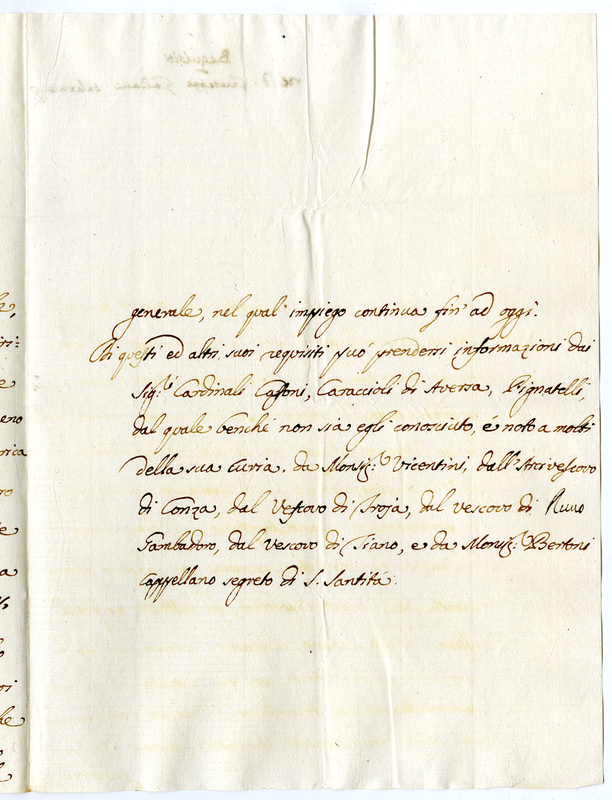 generale, nel qual' impiego continua fin' ad oggi.
Di questi ed altri suoi requisiti può prendersi informazioni dai
Sig.ri Cardinali Caffoni, Caraccioli di Aversa, Pignatelli,
dal quale benche non sia egli conosciuto, é noto a molti
della sua Curia, da Monsig.r Vicentini, dall'Arcivescovo
di Conza, dal Vescovo di Troja, dal vescovo di Ruvo
Gambadoro, dal Vescovo di Tiano, e da Monsig.r Bertoni
Cappellano segreto di S. Santità.